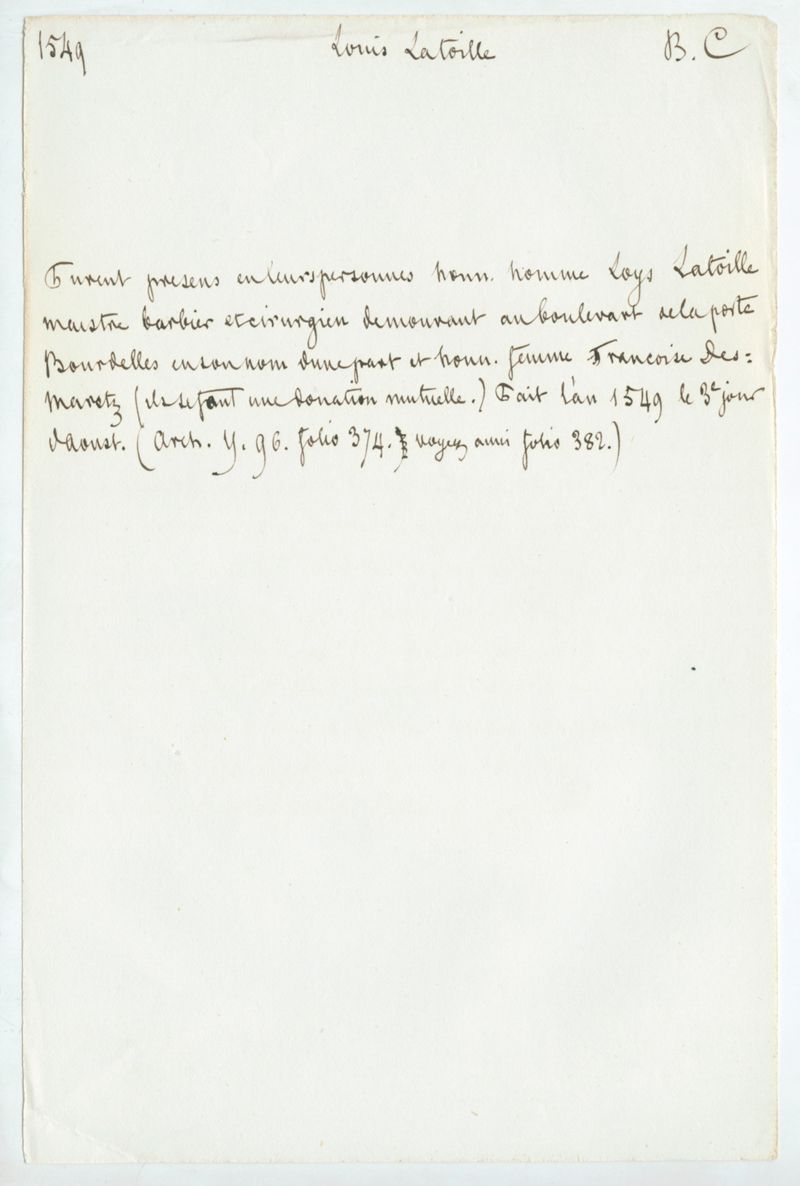 1549 Louis Latoille B. C
Furent presens en leurs personnes honn. homme Loys Latoille
maistre barbier et cirurgien demourant au boulevart de la porte
Bourdelles en son nom dune part et honn. femme Francoise Des=
maretz (ils se font une donation mutuelle.) Fait l'an 1549 le 3e jour
daoust. (Arch. Y. 96. folio 374. voyez aussi folio 382.)